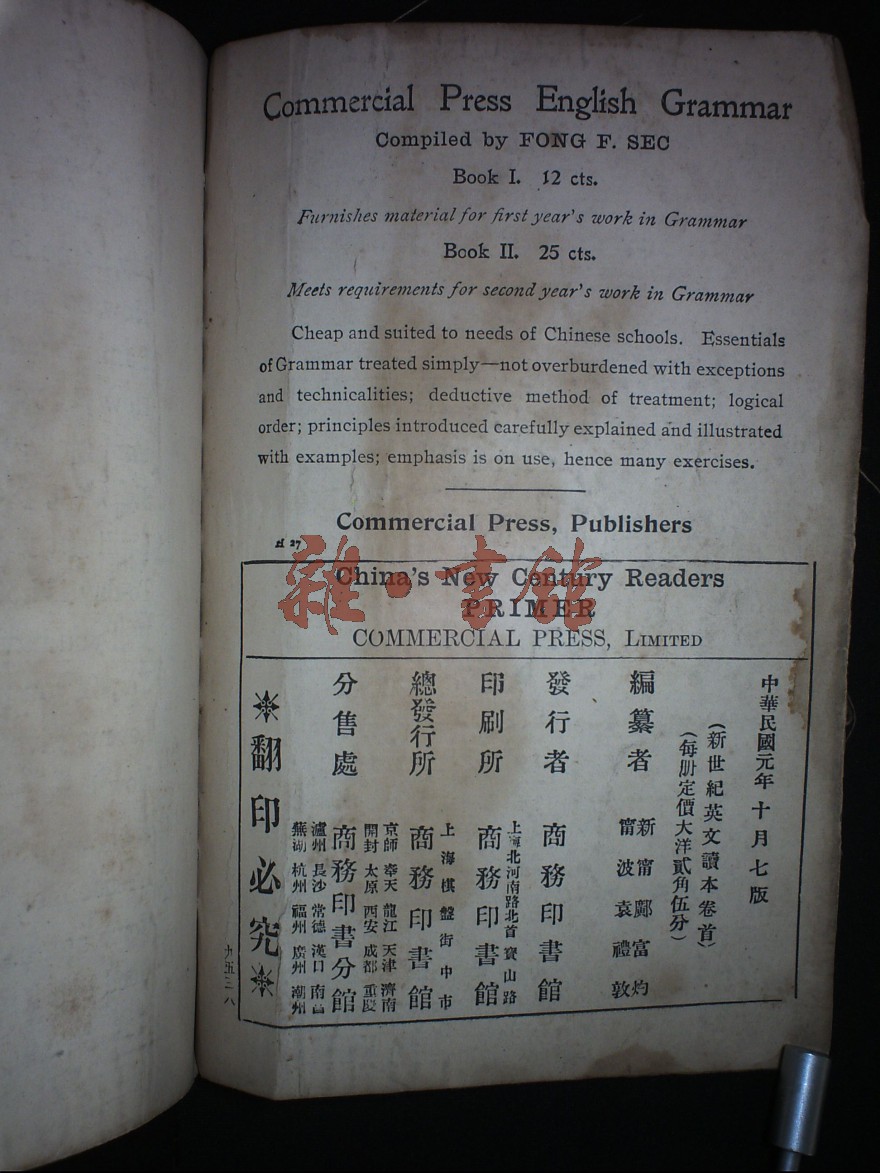 Commercial Press English Grammar
Compiled by FONG F. SEC
Book I. 12 cts.
Furnishes material for first year's work in Grammar
Book II. 25 cts.
Meets requirements for second year's work in Grammar
Cheap and suited to needs of Chinese schools. Essentials
of Grammar treated simply—not overburdened with exceptions
and technicalities; deductive method of treatment; logical
order; principles introduced carefully explained and illustrated
with examples; emphasis is on use, hence many exercises.
Commercial Press, Publishers
雜·書館
China's New Century Readers
PRIMER
COMMERCIAL PRESS, LIMITED
中華民國元年十月七版
(新世紀英文讀本卷首)
(每册定價大洋貳角伍分)
編纂者
新甯鄺富灼
甯波袁禮敦
發行者
商務印書館
印刷所
上海北河南路北首寶山路
商務印書館
總發行所
上海棋盤街中市
商務印書館
分售處
京師 奉天 龍江 天津 濟南
開封 太原 西安 成都 重慶
商務印書分館
瀘州 長沙 常德 漢口 南昌
蕪湖 杭州 福州 廣州 潮州
翻印必究
九五三八